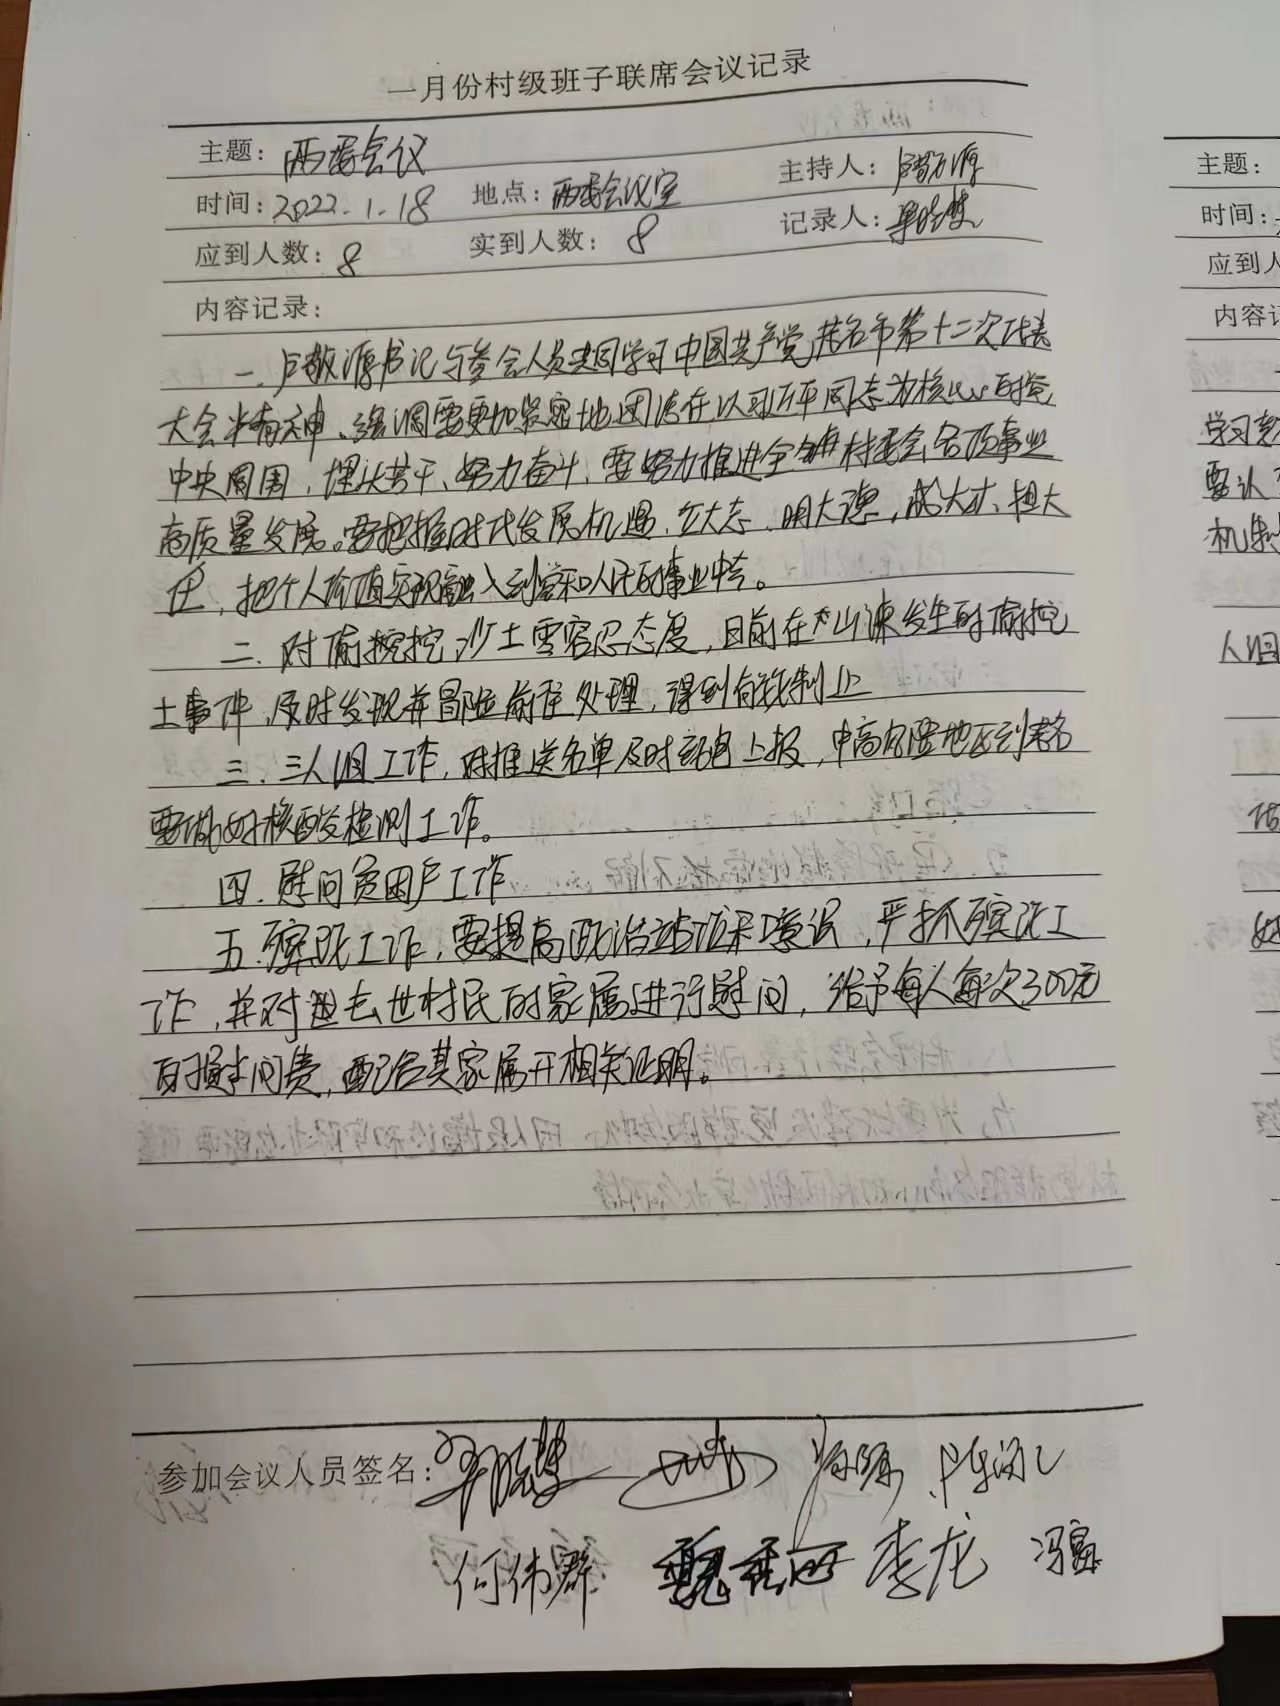 一月份村级班子联席会议记录
主题：两委会议
时间：2022.1.18 地点：两委会议室 主持人：
应到人数：8 实到人数：8 记录人：
内容记录：
一、卢敬源书记与参会人员共同学习中国共产党茂名市第十二次代表
大会精神、强调需更加紧密地团结在以习近平同志为核心的党
中央周围，埋头苦干、努力奋斗、要努力推进全村委会各项事业
高质量发展。要把握时代发展机遇、立大志、明大德，成大才、担大
任，把个人价值实现融入到国家和人民的事业中去。
二、对偷挖沙土零容忍态度，目前在发生的偷挖
土事件，及时发现并冒险前往处理，得到有效制止
三、三人组工作，对推送名单及时上报，中高风险地区到茂名
要做好核酸检测工作。
四、慰问贫困户工作
五、殡改工作，要提高政治站位和意识，严抓殡改工
作，并对过去世村民的家属进行慰问，给予每人每次300元
的慰问费，配合其家属开相关证明。
参加会议人员签名：
何伟群 李龙
主题：
时间：
应到人
内容记
学习
要认
机制
人组